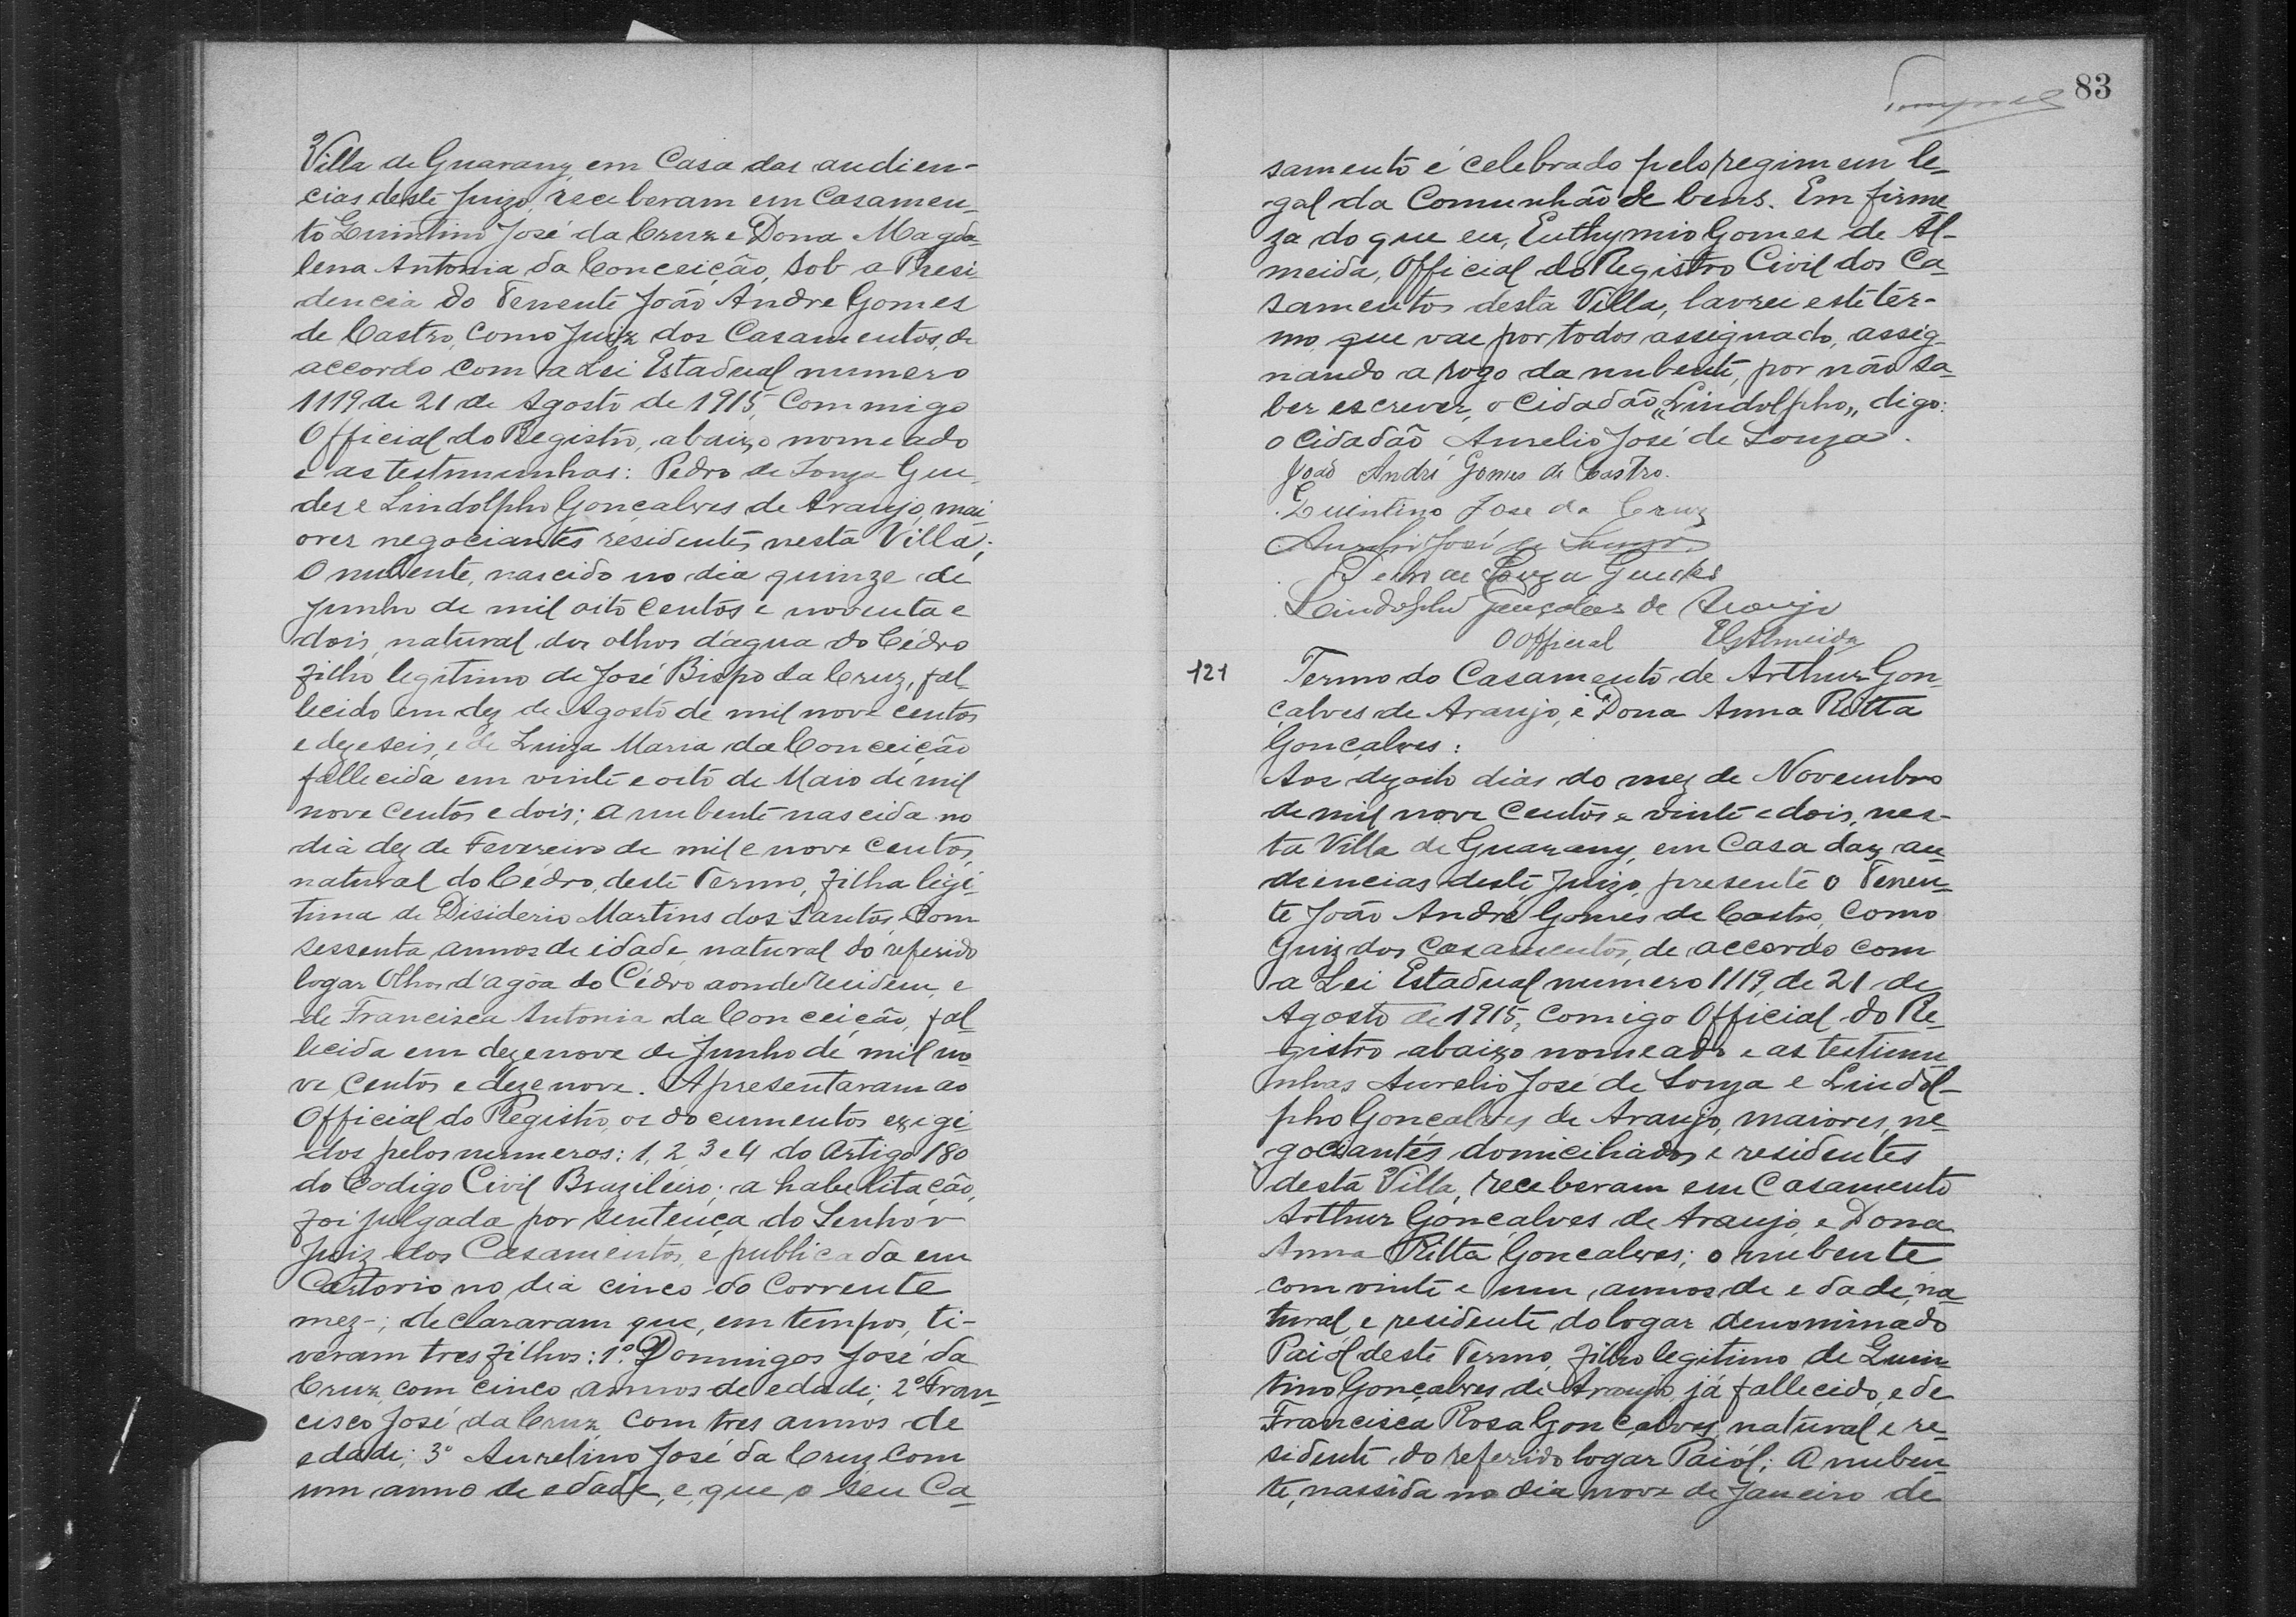 Villa de Guarany, em Casa das audien-
cias deste Juizo, receberam em Casamen-
to Quintino José da Cruz e Dona Magda-
lena Antonia da Conceição, sob a Presi-
dencia do Tenente João Andre Gomes
de Castro, como Juiz dos Casamentos, de
accordo com a Lei Estadual numero
1119 de 21 de Agosto de 1915, Commigo
Official do Registro, abaixo nomeado
e as testimunhas: Pedro de Souza Gue-
des e Lindolpho Gonçalves de Araujo, mai-
ores negociantes residentes nesta Villa;
O nubente, nascido no dia quinze de
Junho de mil oito centos e noventa e
dois, natural dos olhos d'agua do Cédro
filho legitimo de José Bispo da Cruz, fal-
lecido em dez de Agosto de mil nove centos
e dezeseis, e de Luiza Maria da Conceição
fallecida em vinte e oito de Maio de mil
nove centos e dois; a nubente nascida no
dia dez de Fevereiro de mil e nove centos,
natural do Cédro, deste Termo, filha legi-
tima de Disiderio Martins dos Santos, Com
sessenta annos de idade natural do referido
logar Olhos d'agôa do Cédro aonde residem, e
de Francisca Antonia da Conceição, fal-
lecida em dezenove de Junho de mil no-
ve centos e dezenove. Apresentaram ao
Official do Registro, os documentos exigi-
dos pelos numeros: 1, 2, 3 e 4 do Artigo 180
do Codigo Civil Brazileiro; a habelitação,
foi julgada por sentença do Senhor
Juiz dos Casamentos, e publicada em
Cartorio no dia cinco do Corrente
mez-; declararam que, em tempos, ti-
veram tres filhos: 1º. Domingos José da
Cruz, com cinco annos de edade; 2º Fran-
cisco José da Cruz, com tres annos de
edade; 3º Aurelino José da Cruz com
um anno de edade, e, que o seu Ca-
83
samento é celebrado pelo regimem le-
gal da Comunhão de bens. Em firme-
za do que eu, Euthymio Gomes de Al-
meida, Official do Registro Civil dos Ca-
samentos desta Villa, lavrei este ter-
mo que vae por todos assignado, assig-
nando a rogo da nubente, por não sa-
ber escrever, o Cidadão „Lindolpho„ digo:
o Cidadão Aurelio José de Souza.
João André Gomes de Castro.
Quintino Jose da Cruz
Aurelio José de Souza
Pedro de Souza Guedes
Lindolpho Gonçalves de Araujo
O Official EGAlmeida
121 Termo do Casamento de Arthur Gon-
çalves de Araujo, e Dona Anna Ritta
Gonçalves:
Aos dezoito dias do mez de Novembro
de mil nove centos e vinte e dois, nes-
ta Villa de Guarany, em Casa das au-
diencias deste Juizo, presente o Tenen-
te João André Gomes de Castro, como
Juiz dos Casamentos, de accordo com
a Lei Estadual numero 1119, de 21 de
Agosto de 1915, Comigo Official do Re-
gistro abaixo nomeado e as testimu-
nhas Aurelio José de Souza e Lindol-
pho Gonçalves de Araujo, maiores, ne-
gociantes domiciliados e residentes
desta Villa, receberam em Casamento
Arthur Gonçalves de Araujo e Dona
Anna Ritta Gonçalves; o nubente
com vinte e um annos de edade, na-
tural e residente do logar denominado
Paiol deste Termo, filho legitimo de Quin-
tino Gonçalves de Araujo, já fallecido, e de
Francisca Rosa Gonçalves, natural e re-
sidente do referido logar Paiól; a nuben-
te, nassida no dia nove de Janeiro de